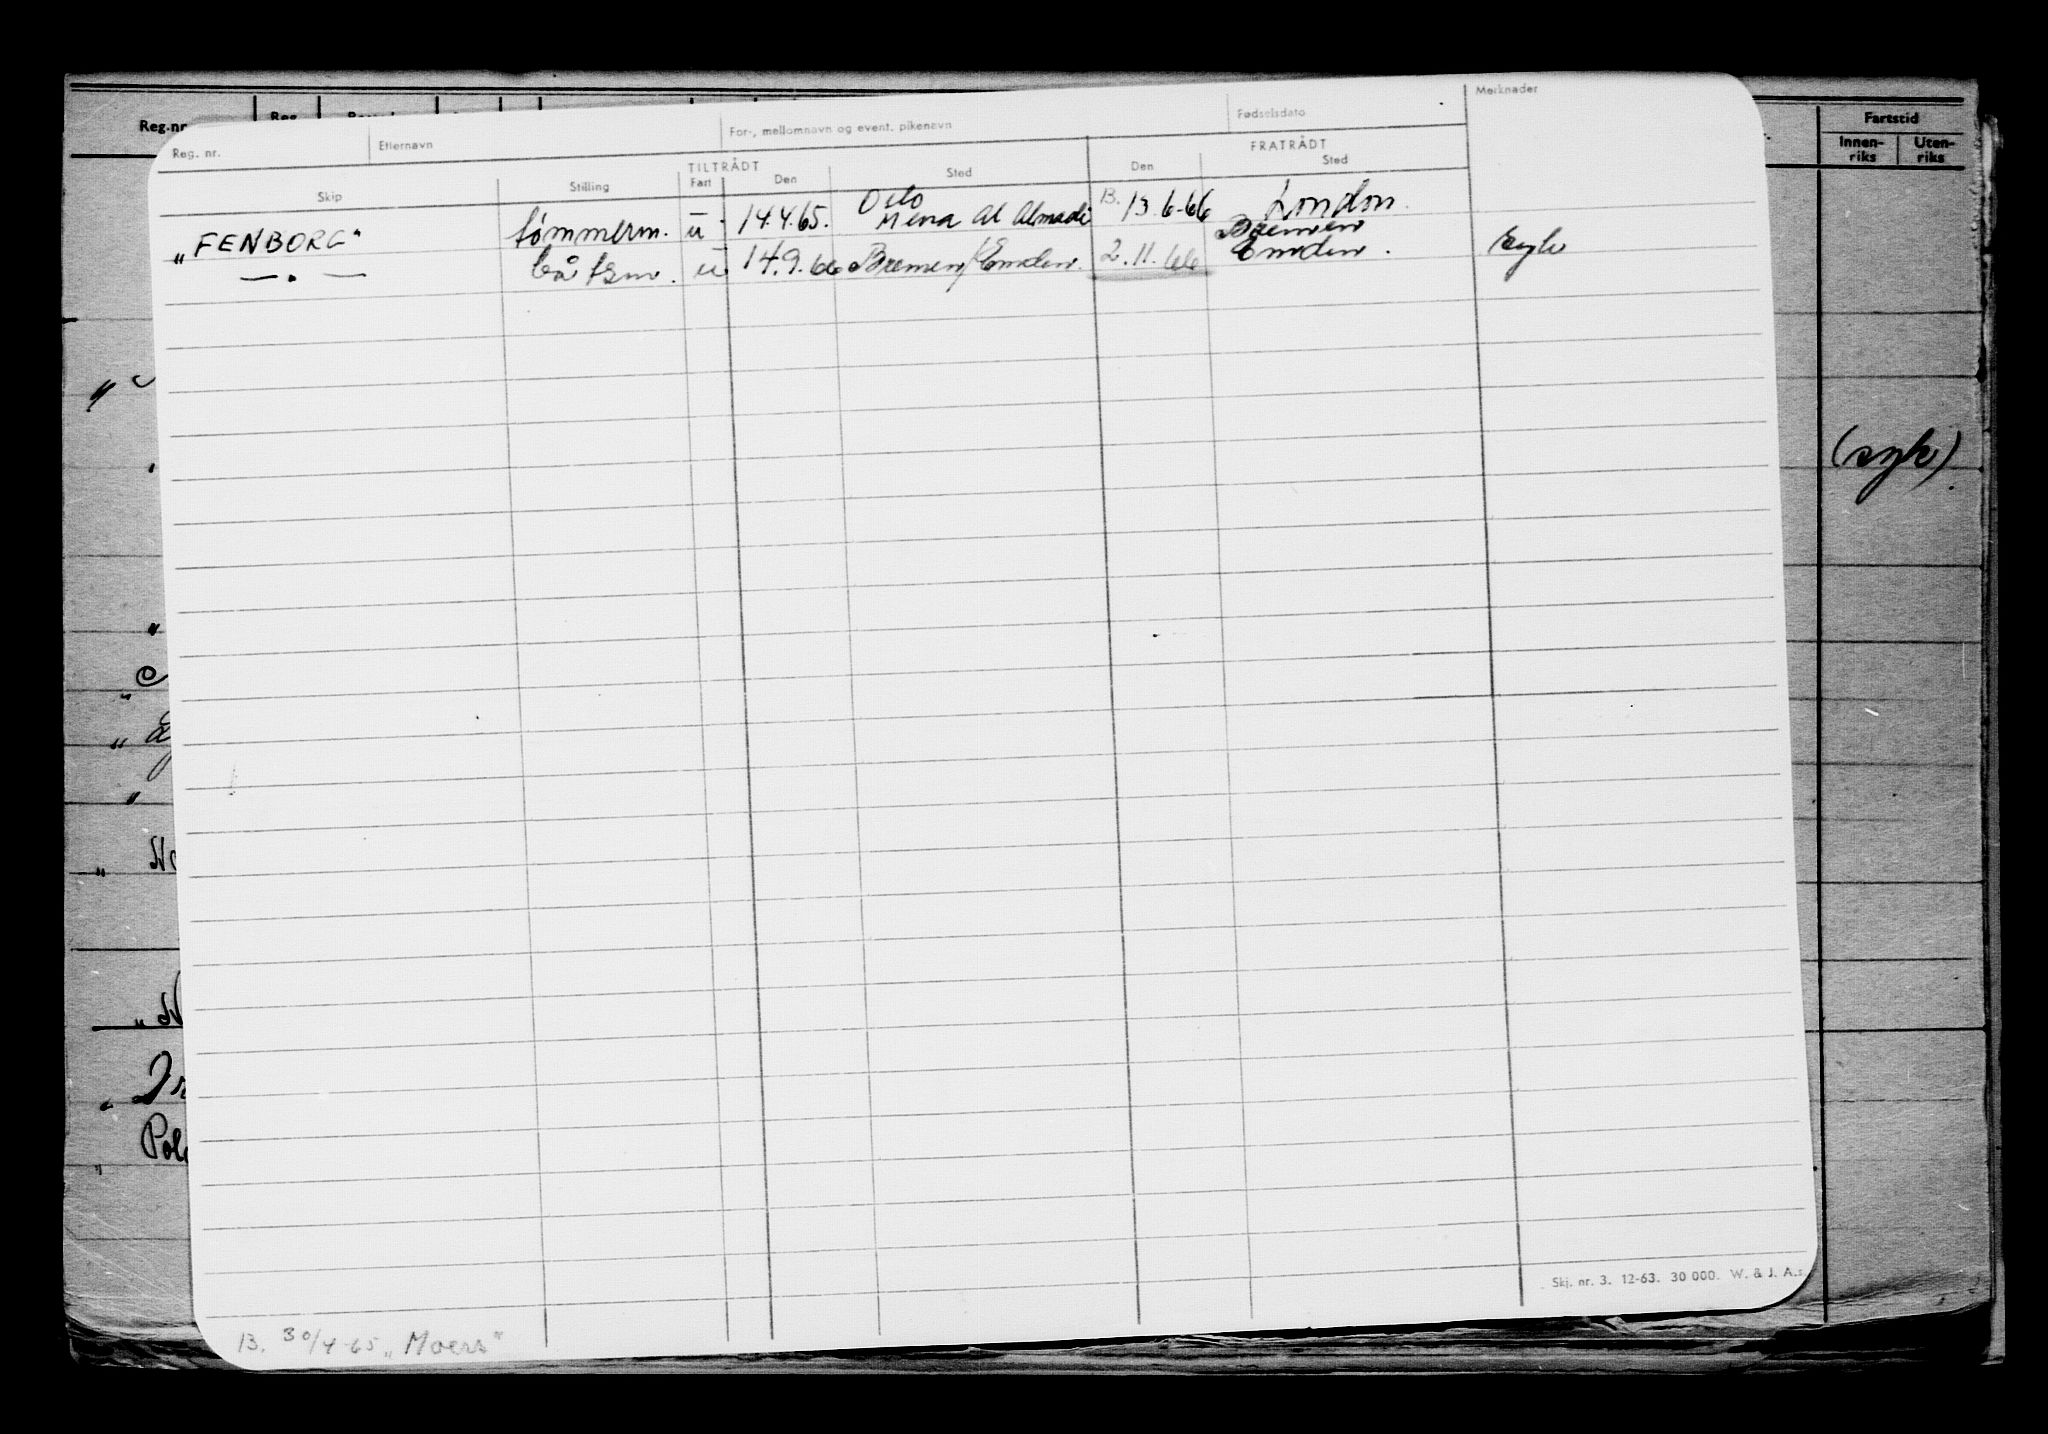 Reg. nr. Etternavn For-, mellomnavn og event. pikenavn Fødselsdato Merknader
TILTRÅDT FRATRÅDT
Skip Stilling Fart Den Sted Den Sted
"FENBORG" tømmerm. u 14.4.65. Oslo Mena Al Ahmadi B. 13.6.66 London.
— . — båtsm. u 14.9.66 Bremen/Emden. 2.11.66 Bremen Emden. syk
Skj. nr. 3. 12-63. 30 000. W. & J. A.s
B. 30/4-65 "Moers"
Reg.nr
Fartstid
Innen-riks Uten-riks
(syk)